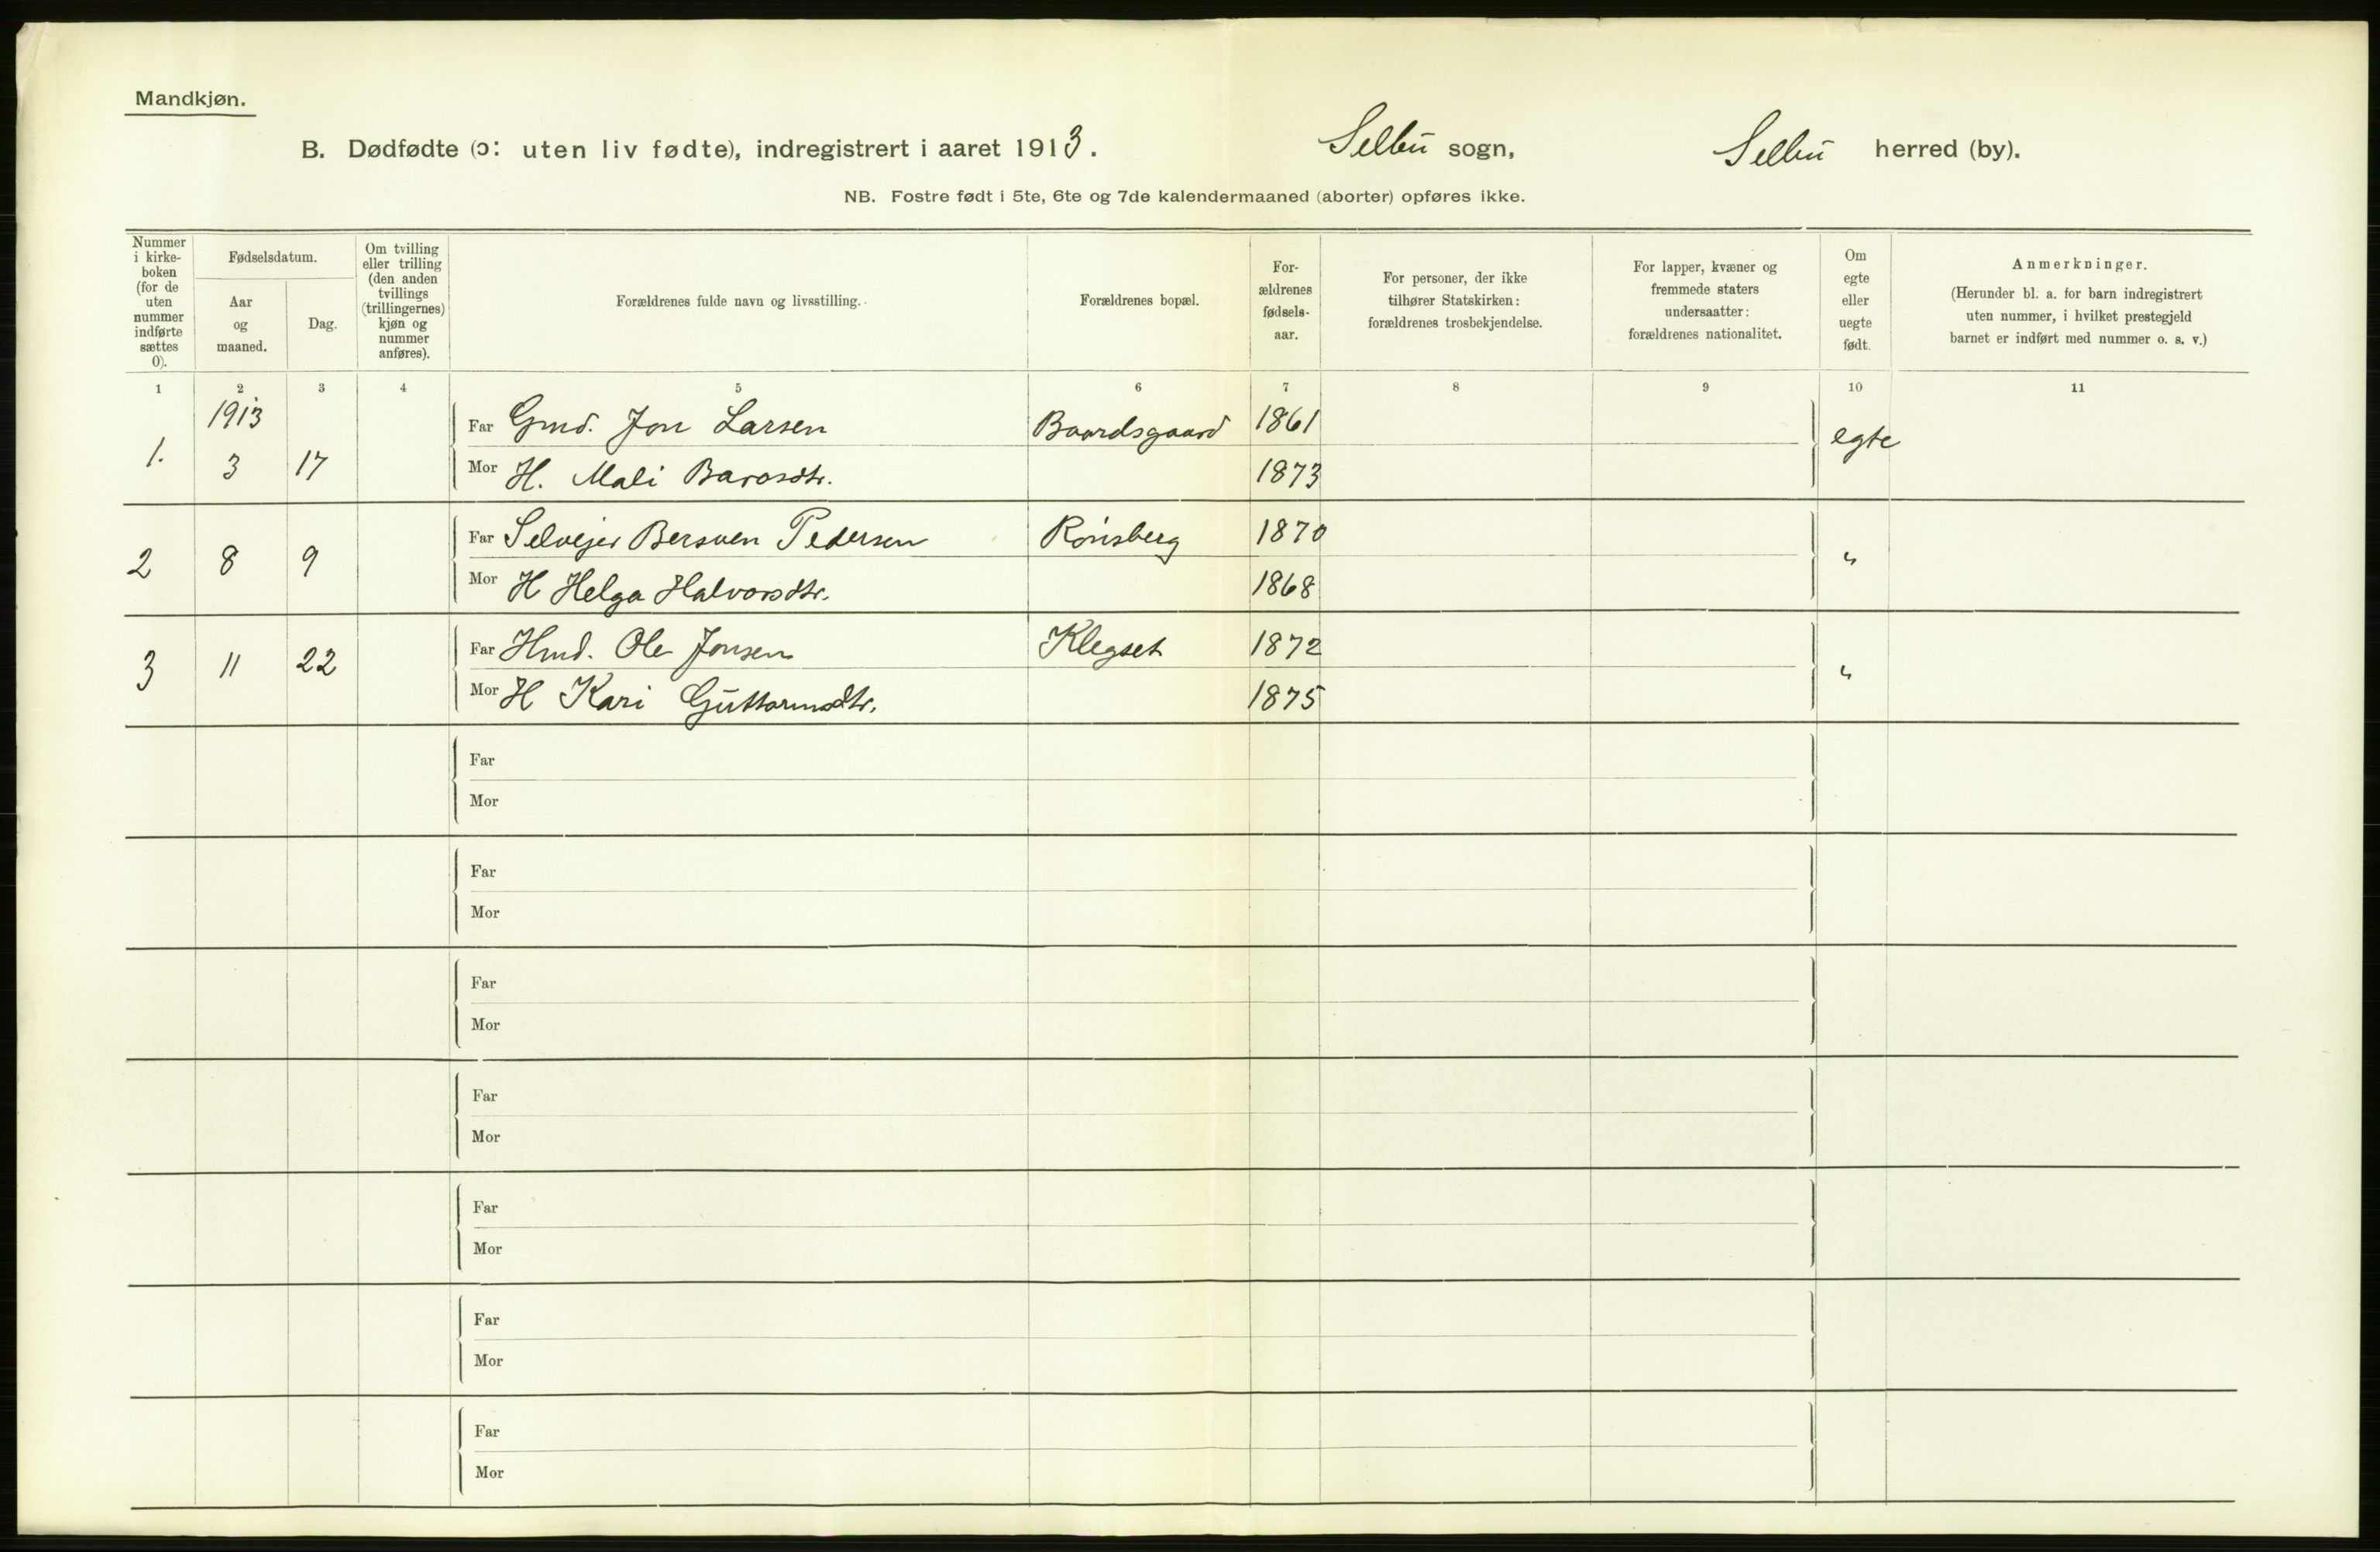 Mandkjøn.
B. Dødfødte (ɔ: uten liv fødte), indregistrert i aaret 1913. Selbu sogn, Selbu herred (by).
NB. Fostre født i 5te, 6te og 7de kalendermaaned (aborter) opføres ikke.
Nummer
i kirke-
boken
(for de
uten
nummer
indførte
sættes
0).
Fødselsdatum.
Aar
og
maaned.
Dag.
Om tvilling
eller trilling
(den anden
tvillings
(trillingernes)
kjøn og
nummer
anføres).
Forældrenes fulde navn og livsstilling.
Forældrenes bopæl.
For-
ældrenes
fødsels-
aar.
For personer, der ikke
tilhører Statskirken:
forældrenes trosbekjendelse.
For lapper, kvæner og
fremmede staters
undersaatter:
forældrenes nationalitet.
Om
egte
eller
uegte
født.
Anmerkninger.
(Herunder bl. a. for barn indregistrert
uten nummer, i hvilket prestegjeld
barnet er indført med nummer o. s. v.)
1 2 3 4 5 6 7 8 9 10 11
1913
Far Gmd. Jon Larsen Baardsgaard 1861 egte
1. 3 17
Mor H. Mali 1873
Far Selveier Bersven Pedersen 1870
2 8 9 "
Mor H Helga Halvorsdtr. 1868
Far Hmd. Ole Jonsen Klegset 1872
3 11 22 "
Mor H Kari Guttormsdtr. 1875
Far
Mor
Far
Mor
Far
Mor
Far
Mor
Far
Mor
Far
Mor
Far
Mor